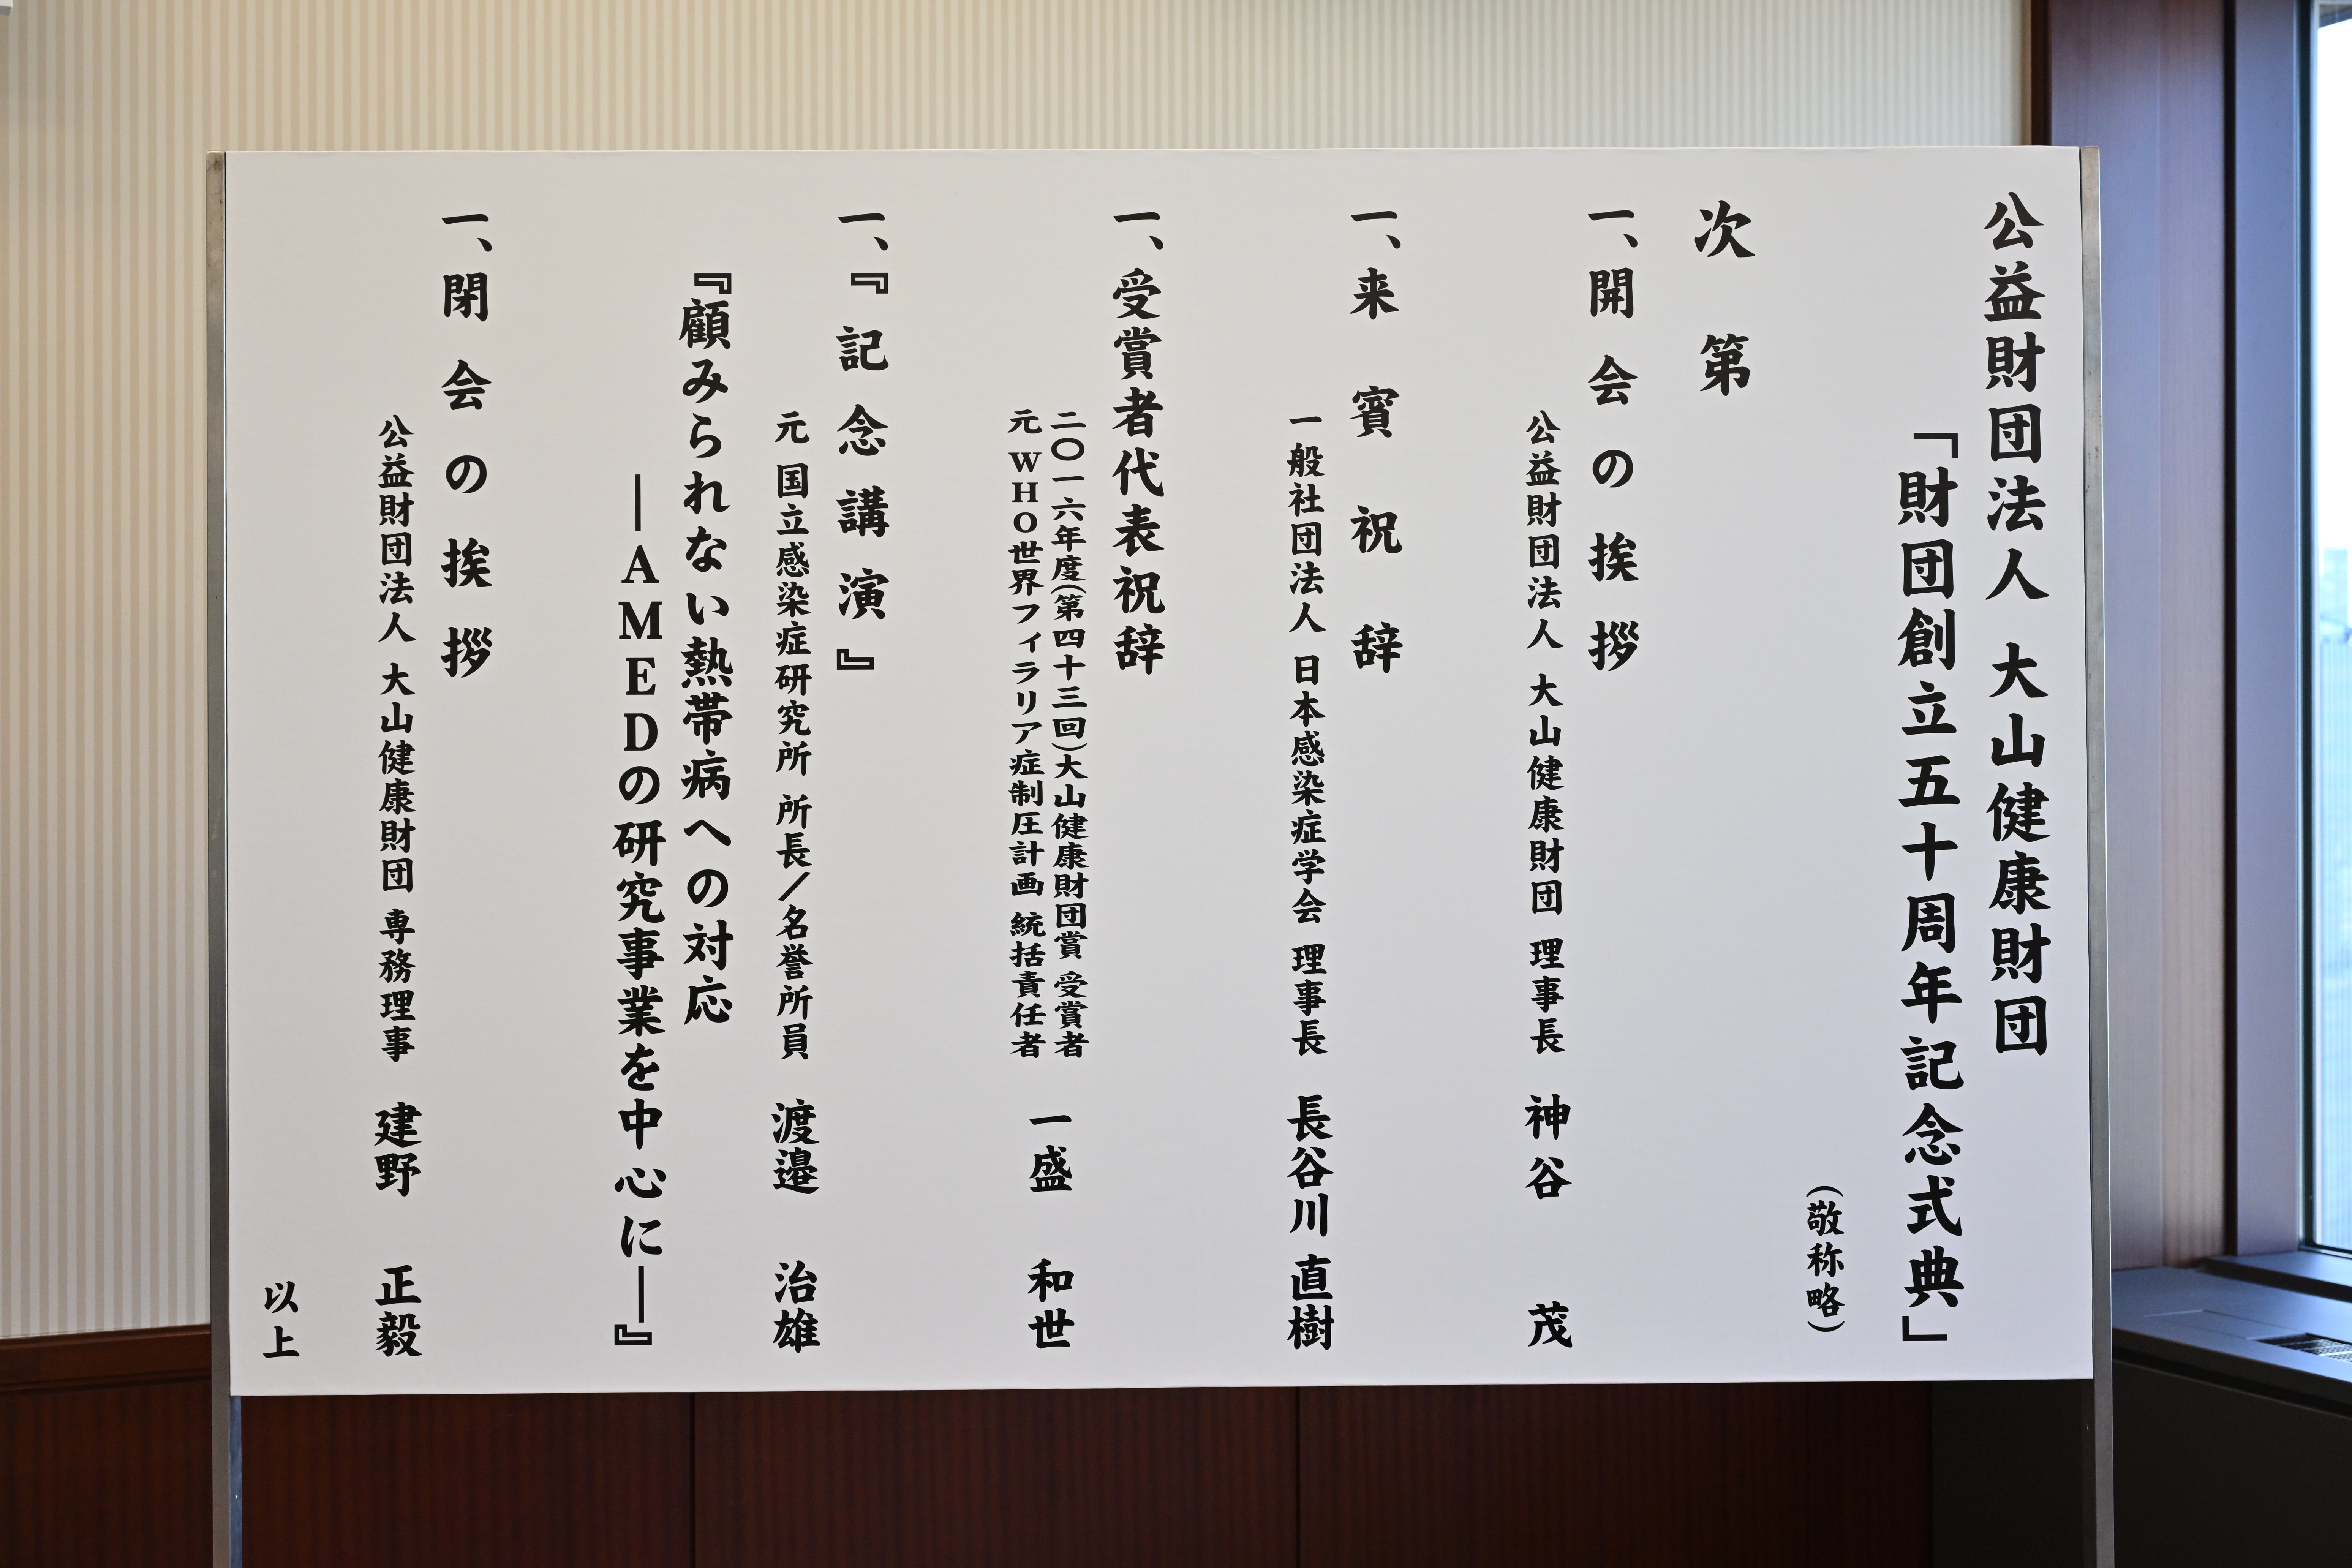 公益財団法人 大山健康財団
「財団創立五十周年記念式典」
(敬称略)
次 第
一、開会の挨拶
公益財団法人 大山健康財団 理事長 神谷 茂
一、来賓祝辞
一般社団法人 日本感染症学会 理事長 長谷川 直樹
一、受賞者代表祝辞
二〇一六年度(第四十三回)大山健康財団賞 受賞者
元 WHO世界フィラリア症制圧計画 統括責任者 一盛 和世
一、『記念講演』
元 国立感染症研究所 所長/名誉所員 渡邉 治雄
『顧みられない熱帯病への対応
―AMEDの研究事業を中心に―』
一、閉会の挨拶
公益財団法人 大山健康財団 専務理事 建野 正毅
以上